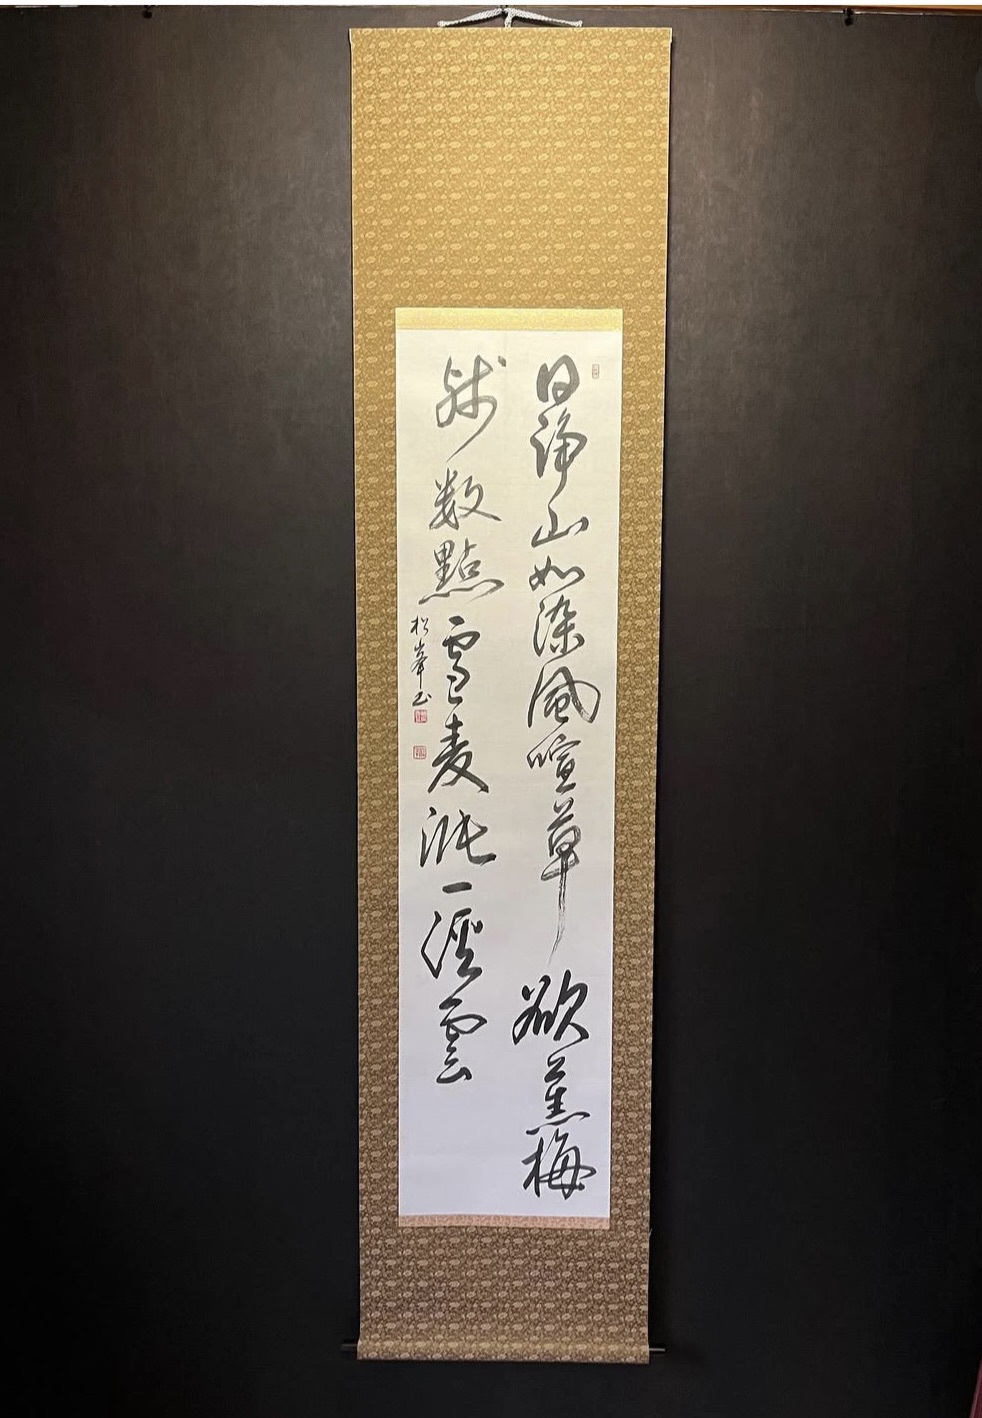 日淨山如染風暄草欲薫梅
残数點雪麦漲一溪雲
松峯書